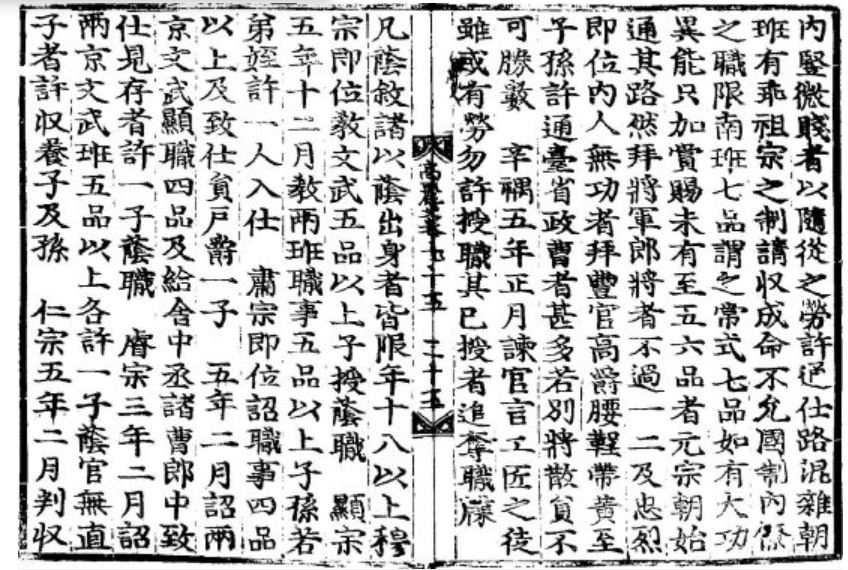 內竪微賤者以隨從之勞許通仕路混雜朝
班有乖祖宗之制請收成命不允國制內僚
之職限南班七品謂之常式七品如有大功
異能只加賞賜未有至五六品者元宗朝始
通其路然拜將軍郎將者不過一二及忠烈
即位內人無功者拜豐官高爵腰鞓帶黃至
子孫許通臺省政曹者甚多若別將散員不
可勝數　辛禑五年正月諫官言工匠之徒
雖或有勞勿許授職其已授者追奪職牒
高麗史七十五　二十五
凡蔭敘諸以蔭出身者皆限年十八以上穆
宗即位敎文武五品以上子授蔭職　顯宗
五年十二月敎兩班職事五品以上子孫若
弟姪許一人入仕　肅宗即位詔職事四品
以上及致仕員戶爵一子　五年二月詔兩
京文武顯職四品及給舍中丞諸曹郎中致
仕見存者許一子蔭職　睿宗三年二月詔
兩京文武班五品以上各許一子蔭官無直
子者許収養子及孫　仁宗五年二月判収